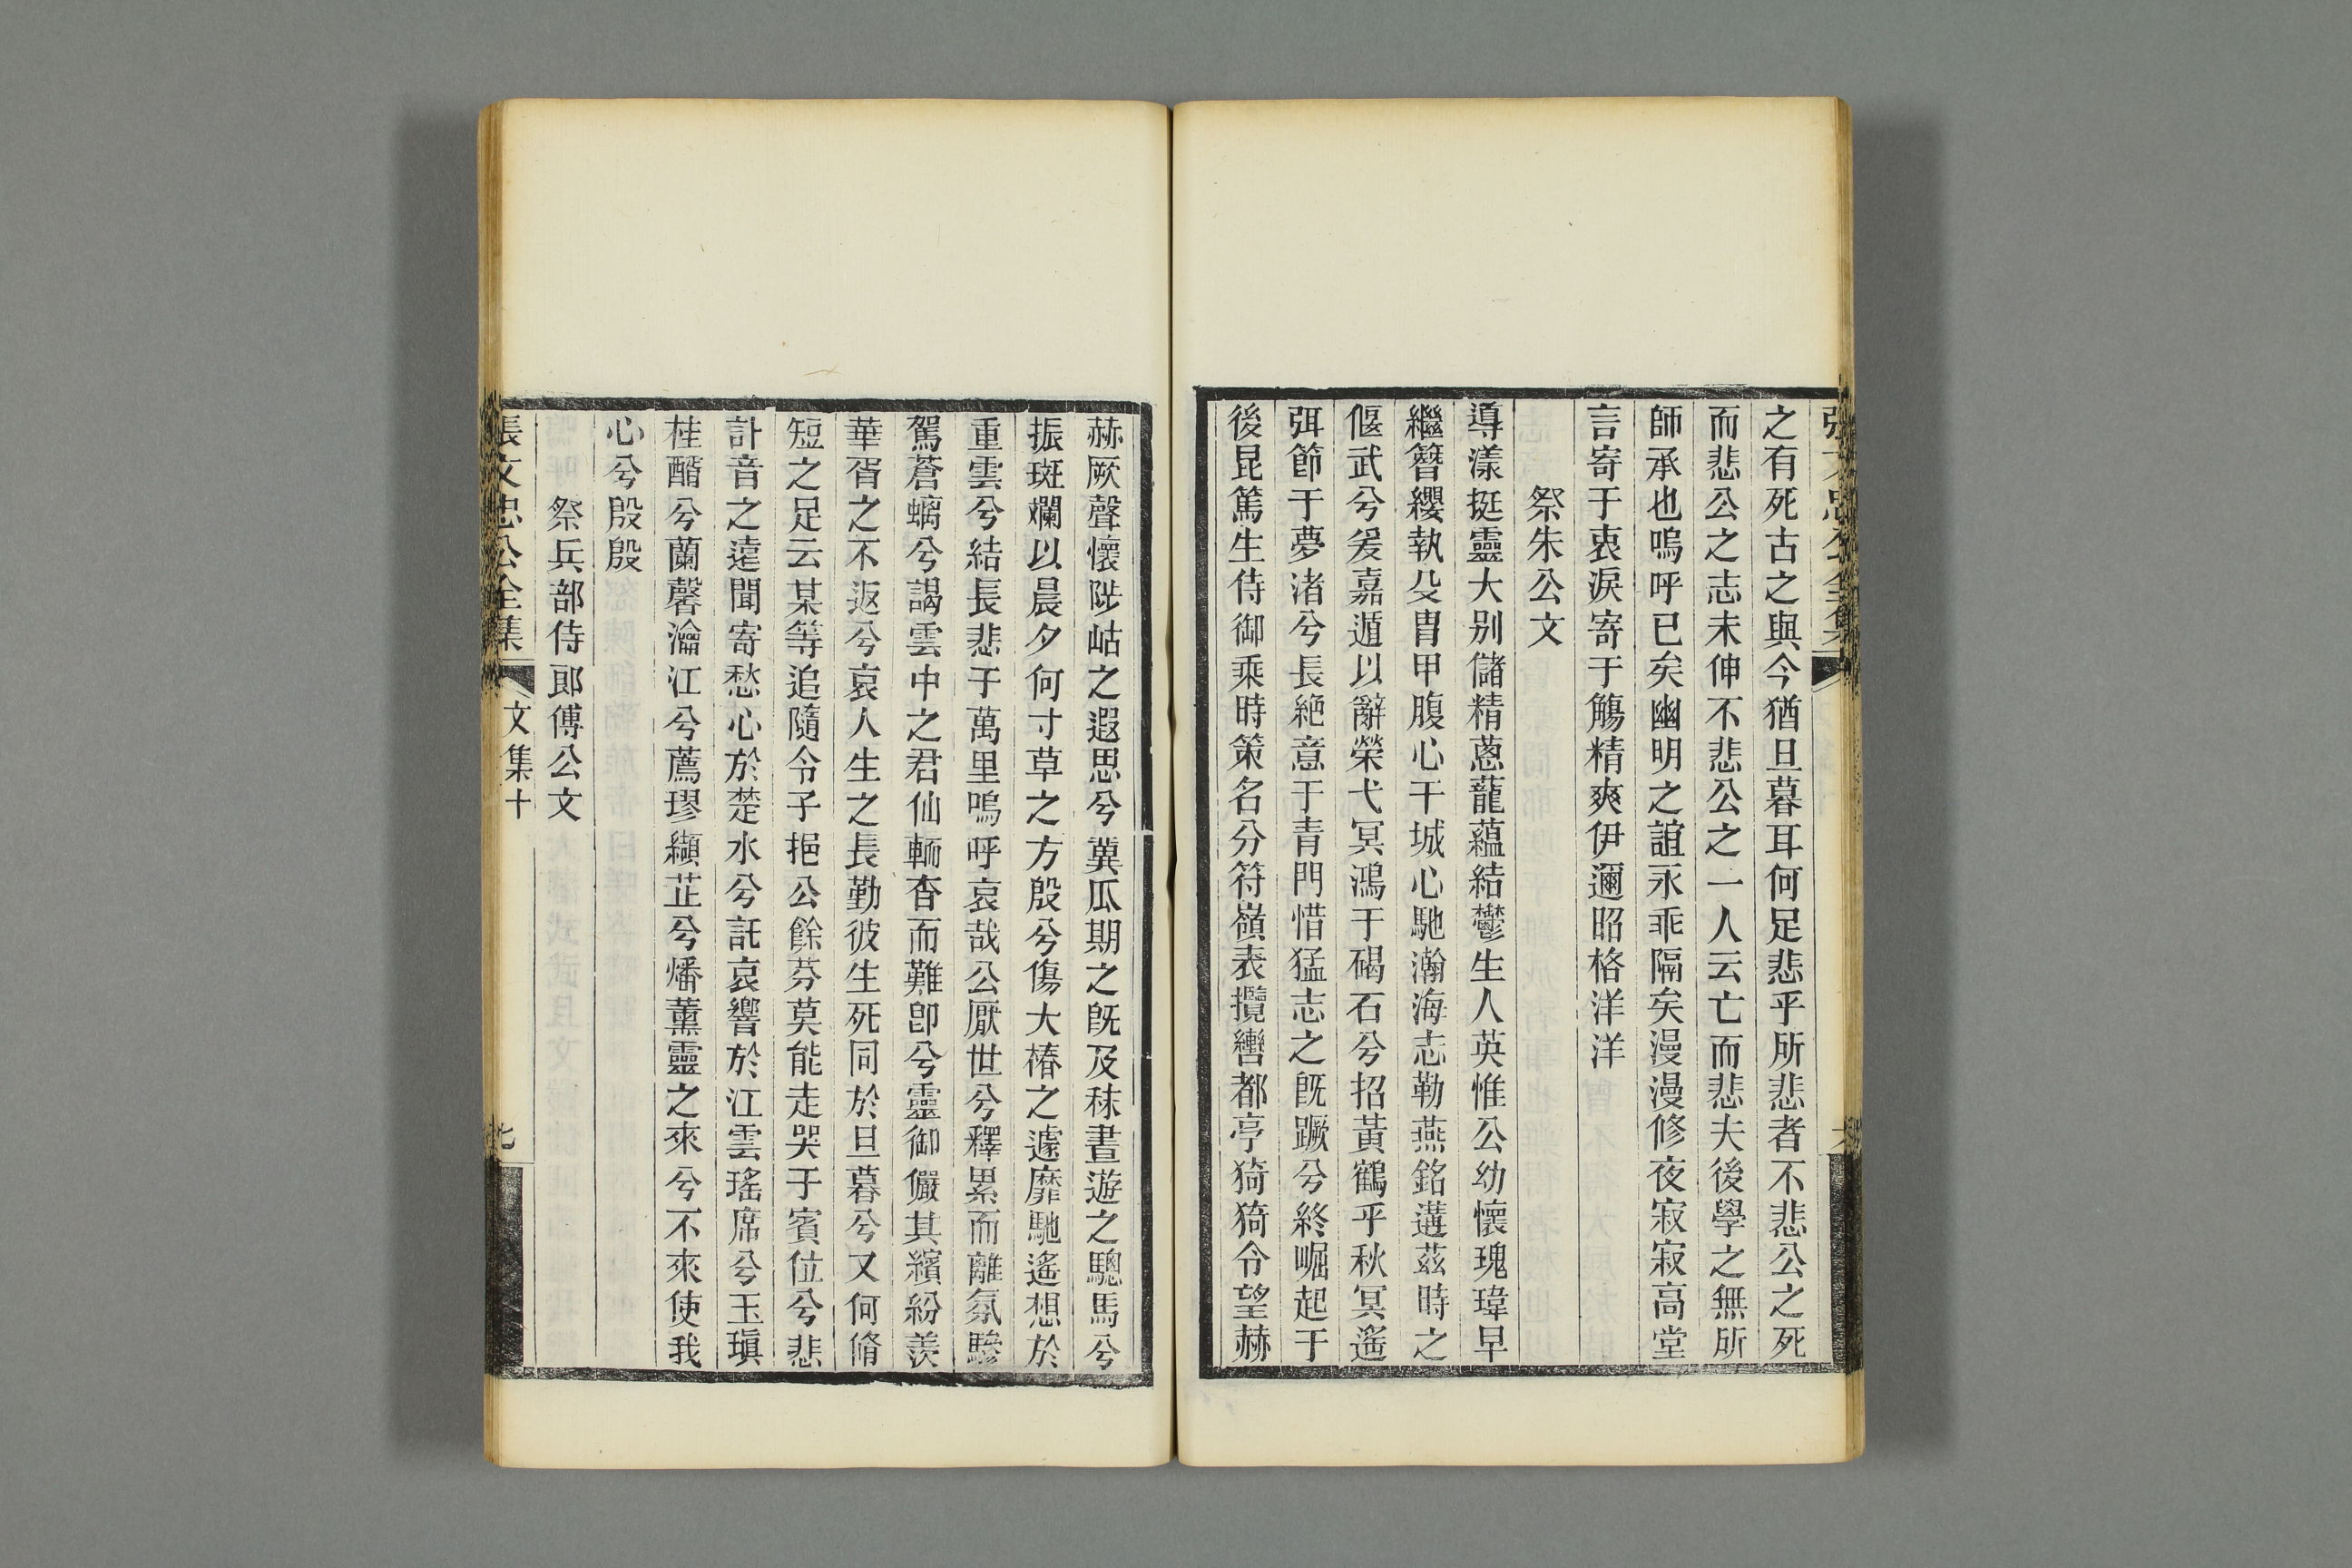 之有死古之與今猶旦暮耳何足悲乎所悲者不悲公之死
而悲公之志未伸不悲公之一人云亡而悲夫後學之無所
師承也嗚呼已矣幽明之誼永乖隔矣漫漫修夜寂寂高堂
言寄于衷淚寄于觴精爽伊邇昭格洋洋
祭朱公文
導漾挺靈大别儲精蔥蘢蘊結鬱生人英惟公幼懷瑰瑋早
繼簪纓執殳胄甲腹心干城心馳瀚海志勒燕銘遘茲時之
偃武兮爰嘉遁以辭榮弋冥鴻于碣石兮招黃鶴乎秋冥遙
弭節于夢渚兮長絶意于青門惜猛志之旣蹶兮終崛起于
後昆篤生侍御乘時策名分符嶺表攬轡都亭猗猗令望赫
赫厥聲懷陟岵之遐思兮冀瓜期之旣及秣晝遊之驄馬兮
振斑斕以晨夕何寸草之方殷兮傷大椿之遽靡馳遙想於
重雲兮結長悲于萬里嗚呼哀哉公厭世兮釋累而離氛驂
駕蒼螭兮謁雲中之君仙輀杳而難卽兮靈御儼其繽紛羨
華胥之不返兮哀人生之長勤彼生死同於旦暮兮又何脩
短之足云某等追隨令子挹公餘芬莫能走哭于賓位兮悲
訃音之遠聞寄愁心於楚水兮託哀響於江雲瑤席兮玉瑱
桂醑兮蘭馨瀹江兮薦璆纈芷兮燔薰靈之來兮不來使我
心兮殷殷
祭兵部侍郎傅公文
張文忠公全集 文集十